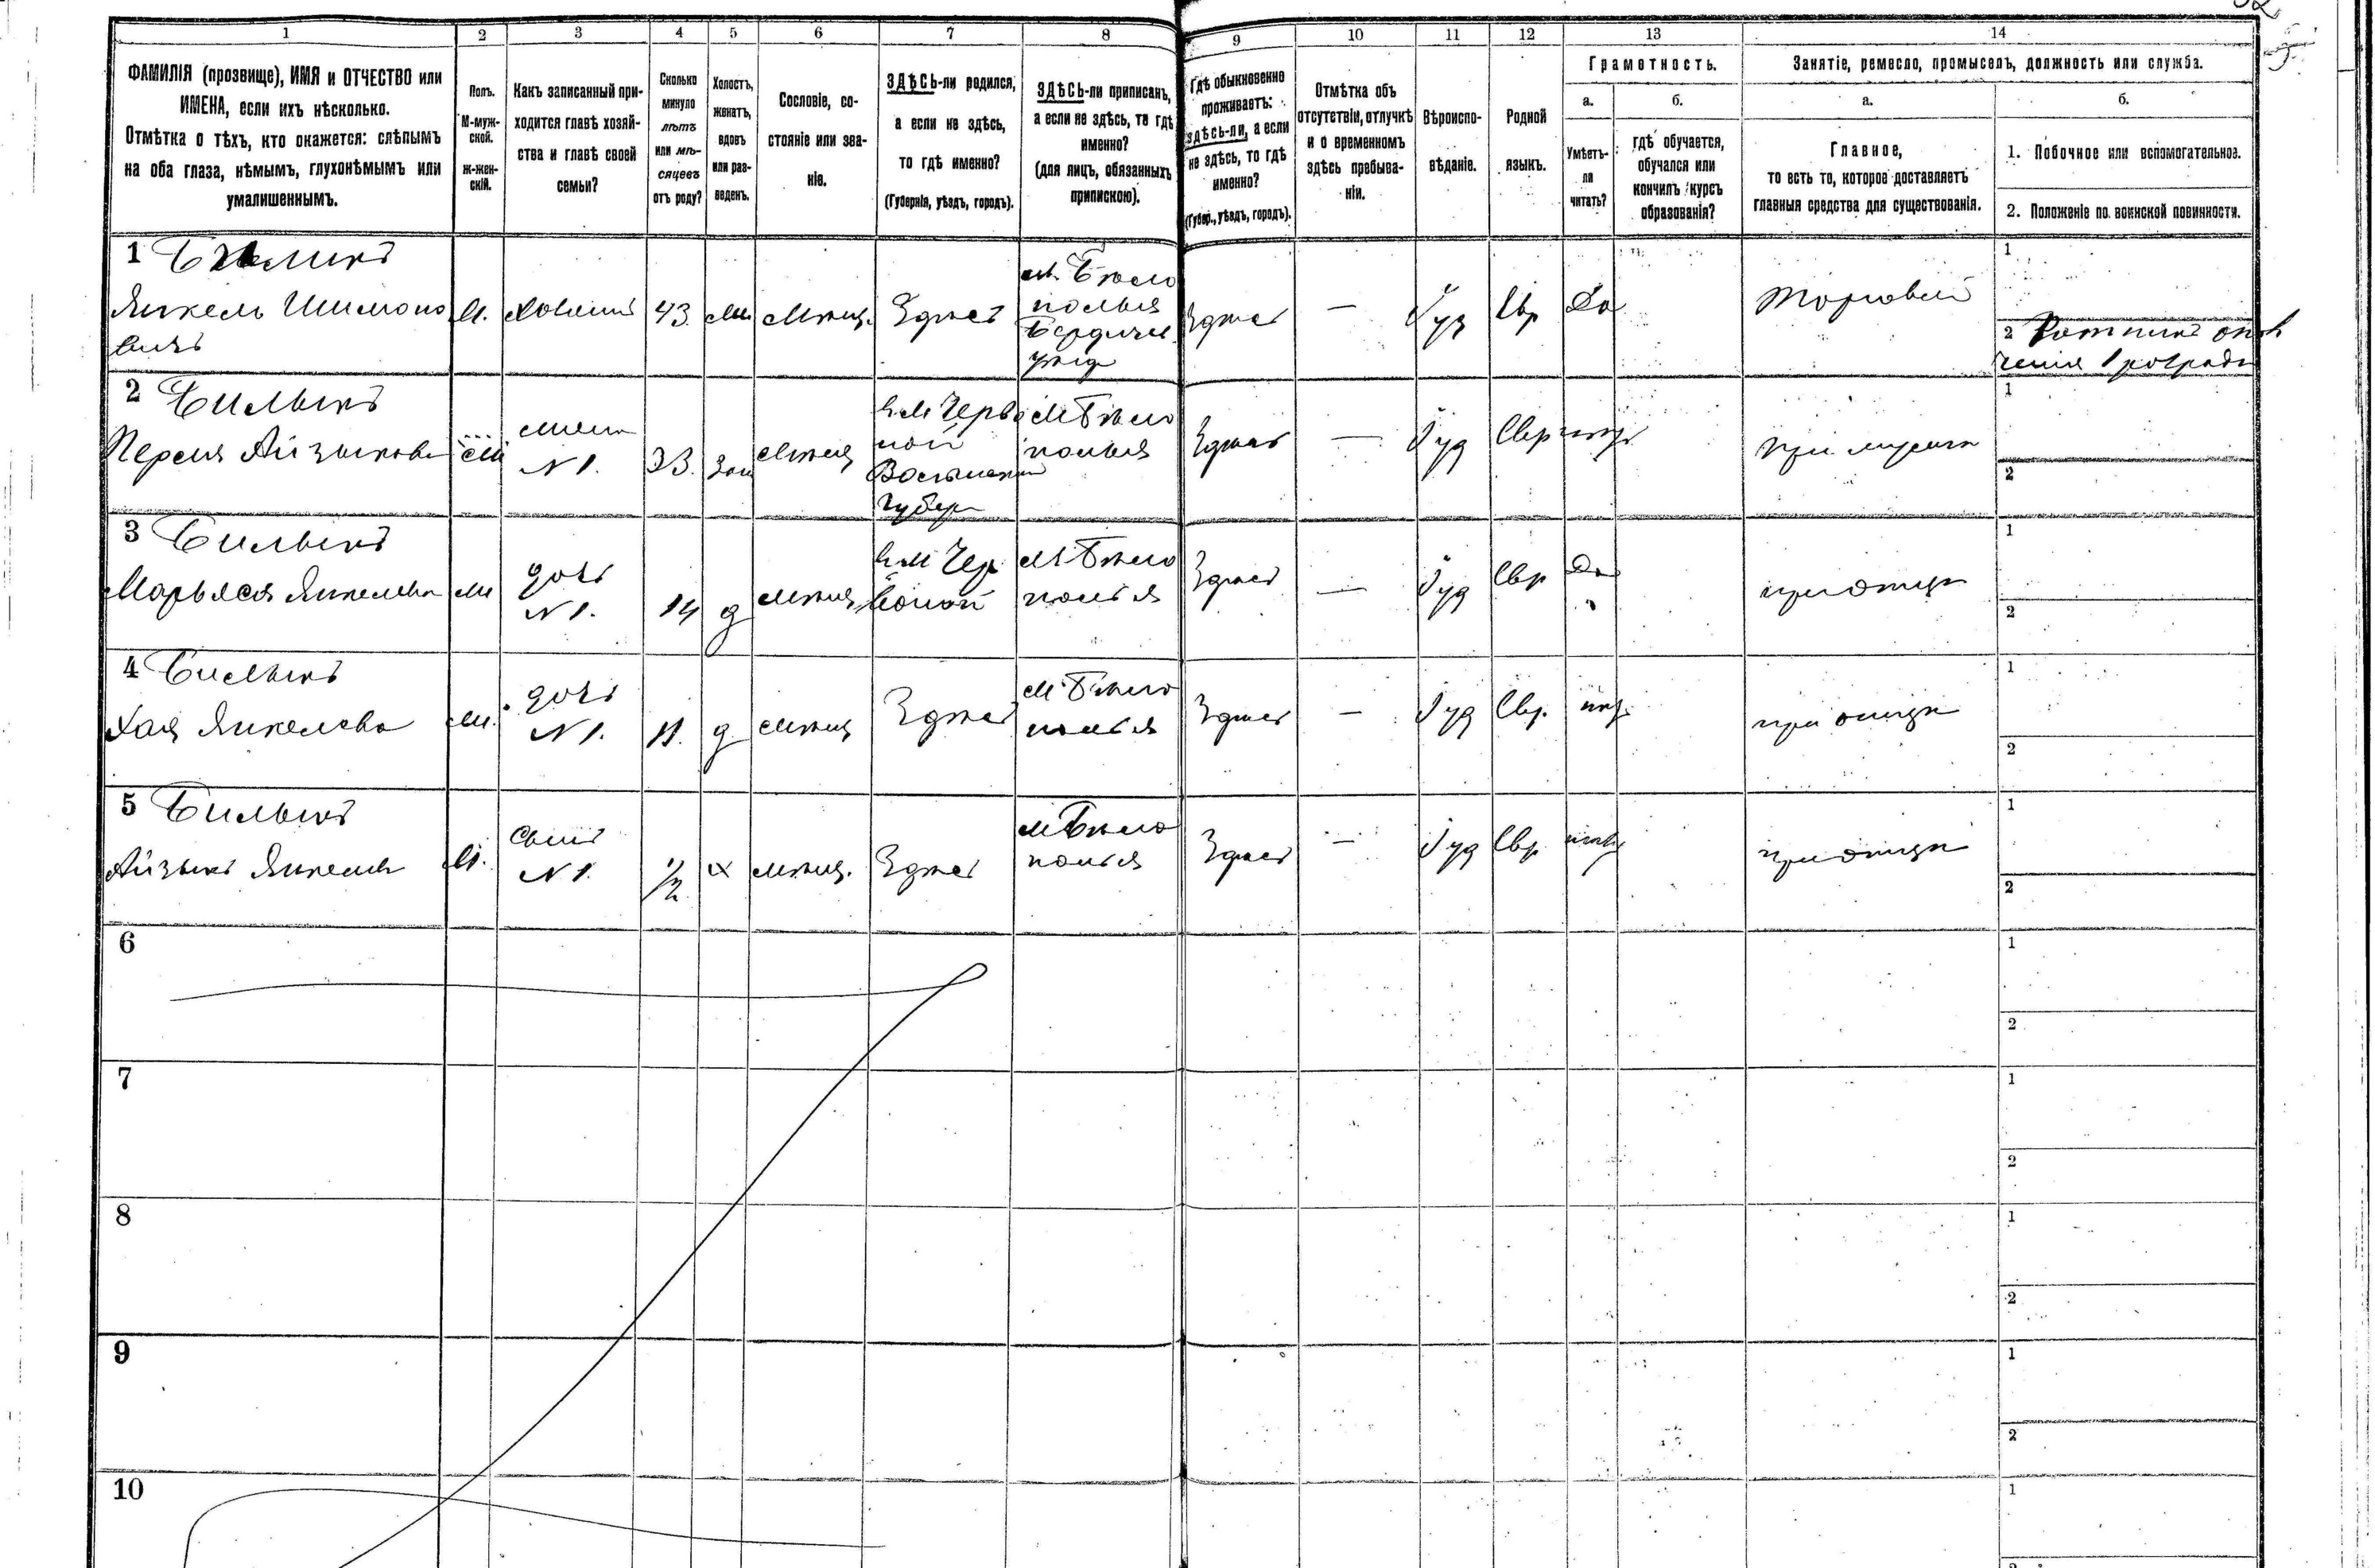 1 2 3 4 5 6 7 8 9 10 11 12 13 14
ФАМИЛІЯ (прозвище), ИМЯ и ОТЧЕСТВО или
ИМЕНА, если ихъ нѣсколько.
Отмѣтка о тѣхъ, кто окажется: слѣпымъ
на оба глаза, нѣмымъ, глухонѣмымъ или
умалишеннымъ.
Полъ.
М-муж-
ской.
ж-жен-
скій.
Какъ записанный при-
ходится главѣ хозяй-
ства и главѣ своей
семьи?
Сколько
минуло
лѣтъ
или мѣ-
сяцевъ
отъ роду?
Холостъ,
женатъ,
вдовъ
или раз-
веденъ.
Сословіе, со-
стояніе или зва-
ніе.
ЗДѢСЬ-ли родился,
а если не здѣсь,
то гдѣ именно?
(Губернія, уѣздъ, городъ).
ЗДѢСЬ-ли приписанъ,
а если не здѣсь, то гдѣ
именно?
(для лицъ, обязанныхъ
припискою).
Гдѣ обыкновенно
проживаетъ:
здѣсь-ли, а если
не здѣсь, то гдѣ
именно?
(Губер., уѣздъ, городъ).
Отмѣтка объ
отсутствіи, отлучкѣ
и о временномъ
здѣсь пребыва-
ніи.
Вѣроиспо-
вѣданіе.
Родной
языкъ.
Грамотность.
а.
Умѣетъ-
ли
читать?
б.
гдѣ обучается,
обучался или
кончилъ курсъ
образованія?
Занятіе, ремесло, промыселъ, должность или служба.
а.
Главное,
то есть то, которое доставляетъ
главныя средства для существованія.
б.
1. Побочное или вспомогательное.
2. Положеніе по воинской повинности.
1
Янкель Шимоно
вичъ
М.
Хозяинъ
43.
Мѣщ.
Здѣсь
м. Бѣло
полья
Бердич.
уѣзд
Здѣсь
—
Іуд
Евр
Да
Торговец
1
2 Ратникъ опол
ченія 1 разряда
2 Билыкъ
Перля Айзыкова
жена
N 1.
33.
зам
Мѣщ
в м Черво
ной
Волынской
губер
М Бѣло
полья
Здѣсь
—
Іуд
Евр
негр
при мужѣ
1
2
3 Билыкъ
Марьяся Янкелева
дочь
N 1.
14
д
мѣщ
в м Чер
воной
М Бѣло
полья
Здѣсь
—
Іуд
Евр
Да
при отцѣ
1
2
4 Билыкъ
Хая Янкелева
дочь
N 1.
11.
д
мѣщ
Здѣсь
М Бѣло
полья
Здѣсь
—
Іуд
Евр.
негр.
при отцѣ
1
2
5 Билыкъ
Айзыкъ Янкелев
М.
сынъ
N 1.
1/2
х
мѣщ.
Здѣсь
М Бѣло
полья
Здѣсь
—
Іуд
Евр
негр
при отцѣ
1
2
6
1
2
7
1
2
8
1
2
9
1
2
10
1